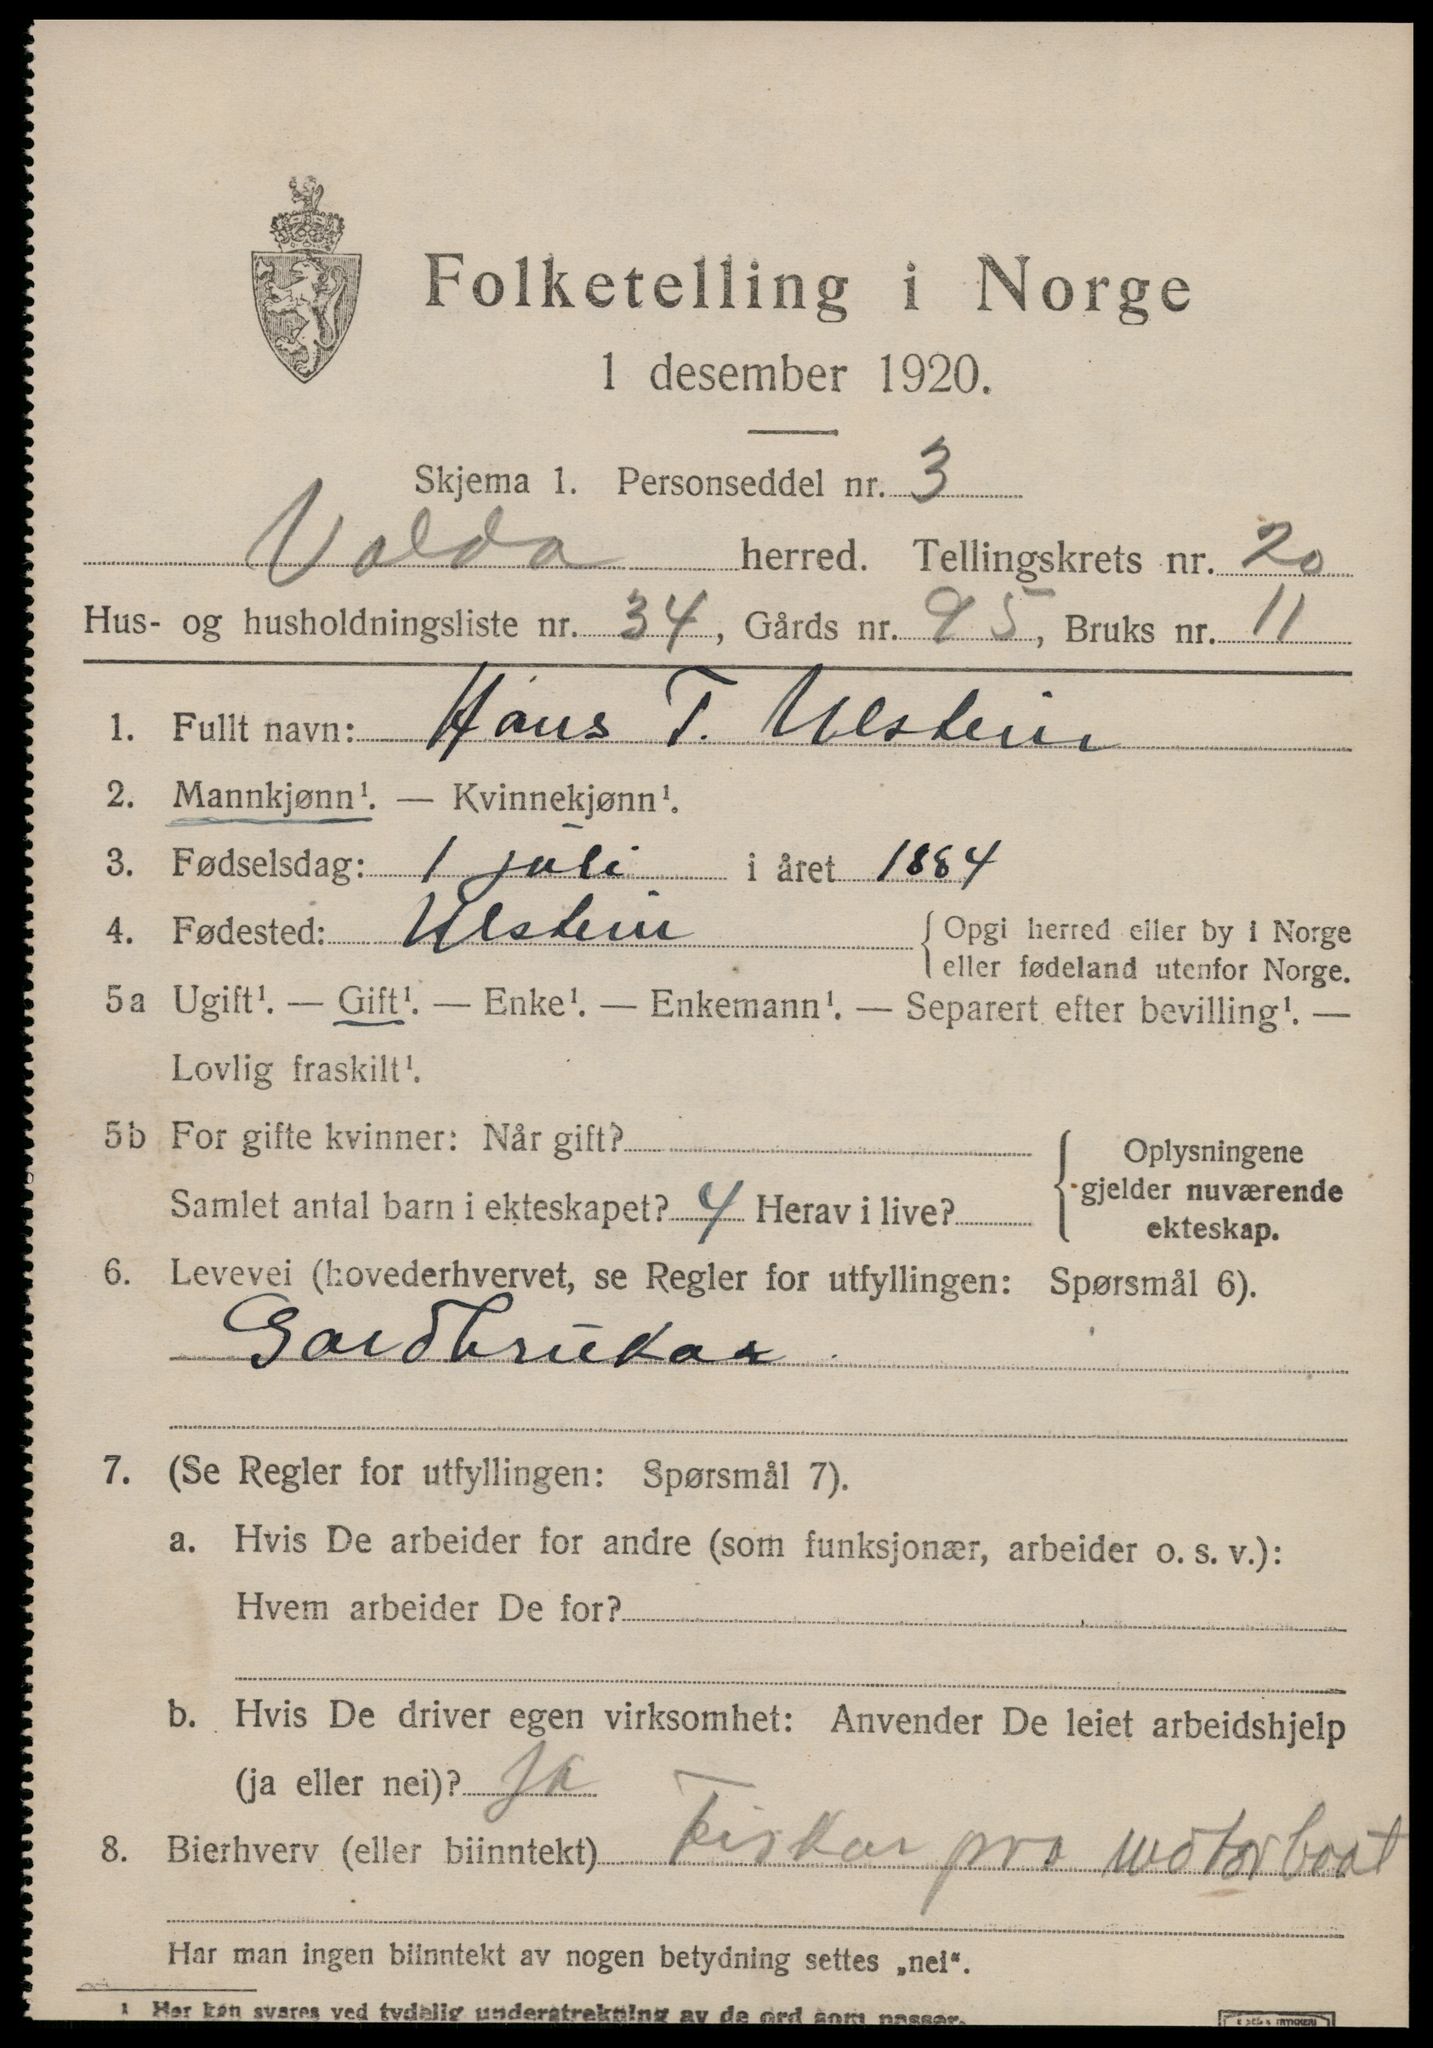 Folketelling i Norge
1 desember 1920.
Skjema 1. Personseddel nr. 3
Volda herred. Tellingskrets nr. 20
Hus- og husholdningsliste nr. 34, Gårds nr. 95, Bruks nr. 11
1. Fullt navn: Hans T. Ulstein
2. Mannkjønn¹. — Kvinnekjønn¹.
3. Fødselsdag: 1 juli i året 1884
4. Fødested: Ulstein {Opgi herred eller by i Norge
eller fødeland utenfor Norge.
5a Ugift¹. — Gift¹. — Enke¹. — Enkemann¹. — Separert efter bevilling¹. —
Lovlig fraskilt¹.
5b For gifte kvinner: Når gift?
Samlet antal barn i ekteskapet? 4 Herav i live?
{Oplysningene
gjelder nuværende
ekteskap.
6. Levevei (hovederhvervet, se Regler for utfyllingen: Spørsmål 6).
Gardbrukar
7. (Se Regler for utfyllingen: Spørsmål 7).
a. Hvis De arbeider for andre (som funksjonær, arbeider o. s. v.):
Hvem arbeider De for?
b. Hvis De driver egen virksomhet: Anvender De leiet arbeidshjelp
(ja eller nei)? Ja
8. Bierhverv (eller biinntekt) Fiskar pro motorboat
Har man ingen biinntekt av nogen betydning settes „nei“.
1 Her kan svares ved tydelig understrekning av de ord som passer.